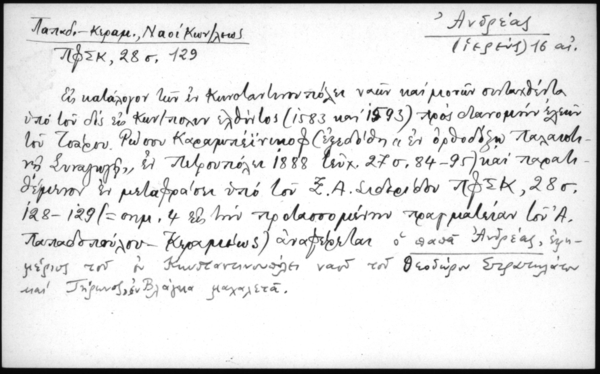 Παπαδ.-Κεραμ., Ναοί Κων/λεως
ΠΦΣΚ, 28 σ. 129
Ἀνδρέας
(ἱερεύς) 16 αἰ.
Εἰς κατάλογον τῶν ἐν Κωνσταντινουπόλει ναῶν καὶ μονῶν συνταχθέντα
ὑπὸ τοῦ δὶς εἰς Κων/πολιν ἐλθόντος (1583 καὶ 1593) πρὸς διανομὴν ἐλεῶν
τοῦ Τσάρου Ρώσου Καραμπέϊνικοφ (ἐξεδόθη ἐν ὀρθοδόξῳ Παλαιστι-
νῇ Συναγωγῇ, ἐν Πετρουπόλει 1888 τεῦχ. 27 σ. 84-95) καὶ παρατι-
θέμενον ἐν μεταφράσει ὑπὸ τοῦ Ξ.Α. Σιδερίδου ΠΦΣΚ, 28 σ.
128-129 (= σημ. 4 εἰς τὴν προτασσομένην πραγματείαν τοῦ Ἀ.
Παπαδοπούλου-Κεραμέως) ἀναφέρεται ὁ παπᾶ Ἀνδρέας, ἐφη-
μέριος τοῦ ἐν Κωνσταντινουπόλει ναοῦ τοῦ Θεοδώρου Στρατηλάτου
καὶ Τήρωνος, ἐν Βλάγκα μαχαλετᾶ.